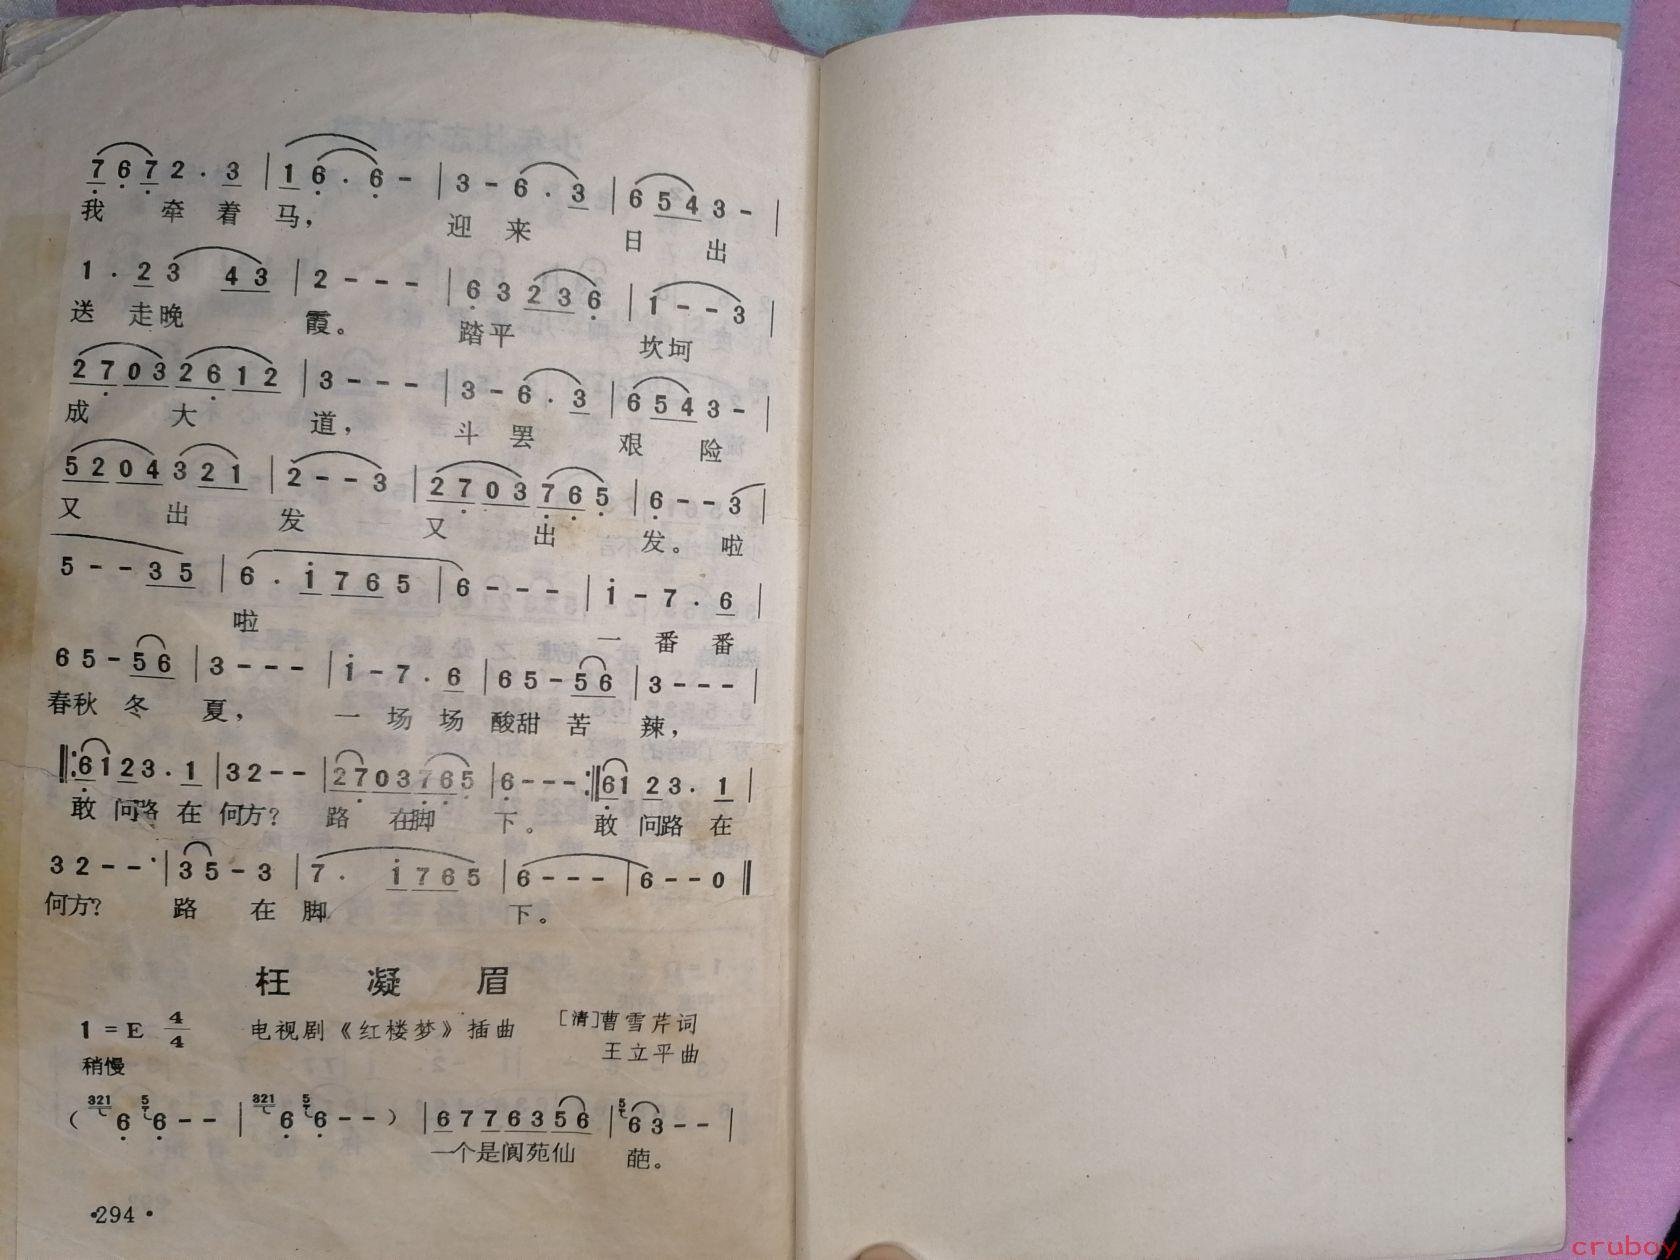 7 6 7 2 . 3 | 1 6 . 6 - | 3 - 6 . 3 | 6 5 4 3 - |
我 牵 着 马， 迎 来 日 出
1 . 2 3 4 3 | 2 - - - | 6 3 2 3 6 | 1 - - 3 |
送 走晚 霞。 踏平 坎坷
2 7 0 3 2 6 1 2 | 3 - - - | 3 - 6 . 3 | 6 5 4 3 - |
成 大 道， 斗 罢 艰 险
5 2 0 4 3 2 1 | 2 - - 3 | 2 7 0 3 7 6 5 | 6 - - 3 |
又 出 发 又 出 发。 啦
5 - - 3 5 | 6 . i 7 6 5 | 6 - - - | i - 7 . 6 |
啦 一 番 番
6 5 - 5 6 | 3 - - - | i - 7 . 6 | 6 5 - 5 6 | 3 - - - |
春秋 冬 夏， 一 场 场 酸甜 苦 辣，
‖: 6 1 2 3 . 1 | 3 2 - - | 2 7 0 3 7 6 5 | 6 - - - :‖ 6 1 2 3 . 1 |
敢 问路 在 何方？ 路 在脚 下。 敢 问路 在
3 2 - - | 3 5 - 3 | 7 . i 7 6 5 | 6 - - - | 6 - - 0 ‖
何方？ 路 在 脚 下。
枉 凝 眉
1 = E 4/4 电视剧《红楼梦》插曲 [清]曹雪芹词
稍慢 王立平曲
( 321 6 5 6 - - | 321 6 5 6 - - ) | 6 7 7 6 3 5 6 | 5 6 3 - - |
一个是阆苑仙 葩。
·294·
cruboy